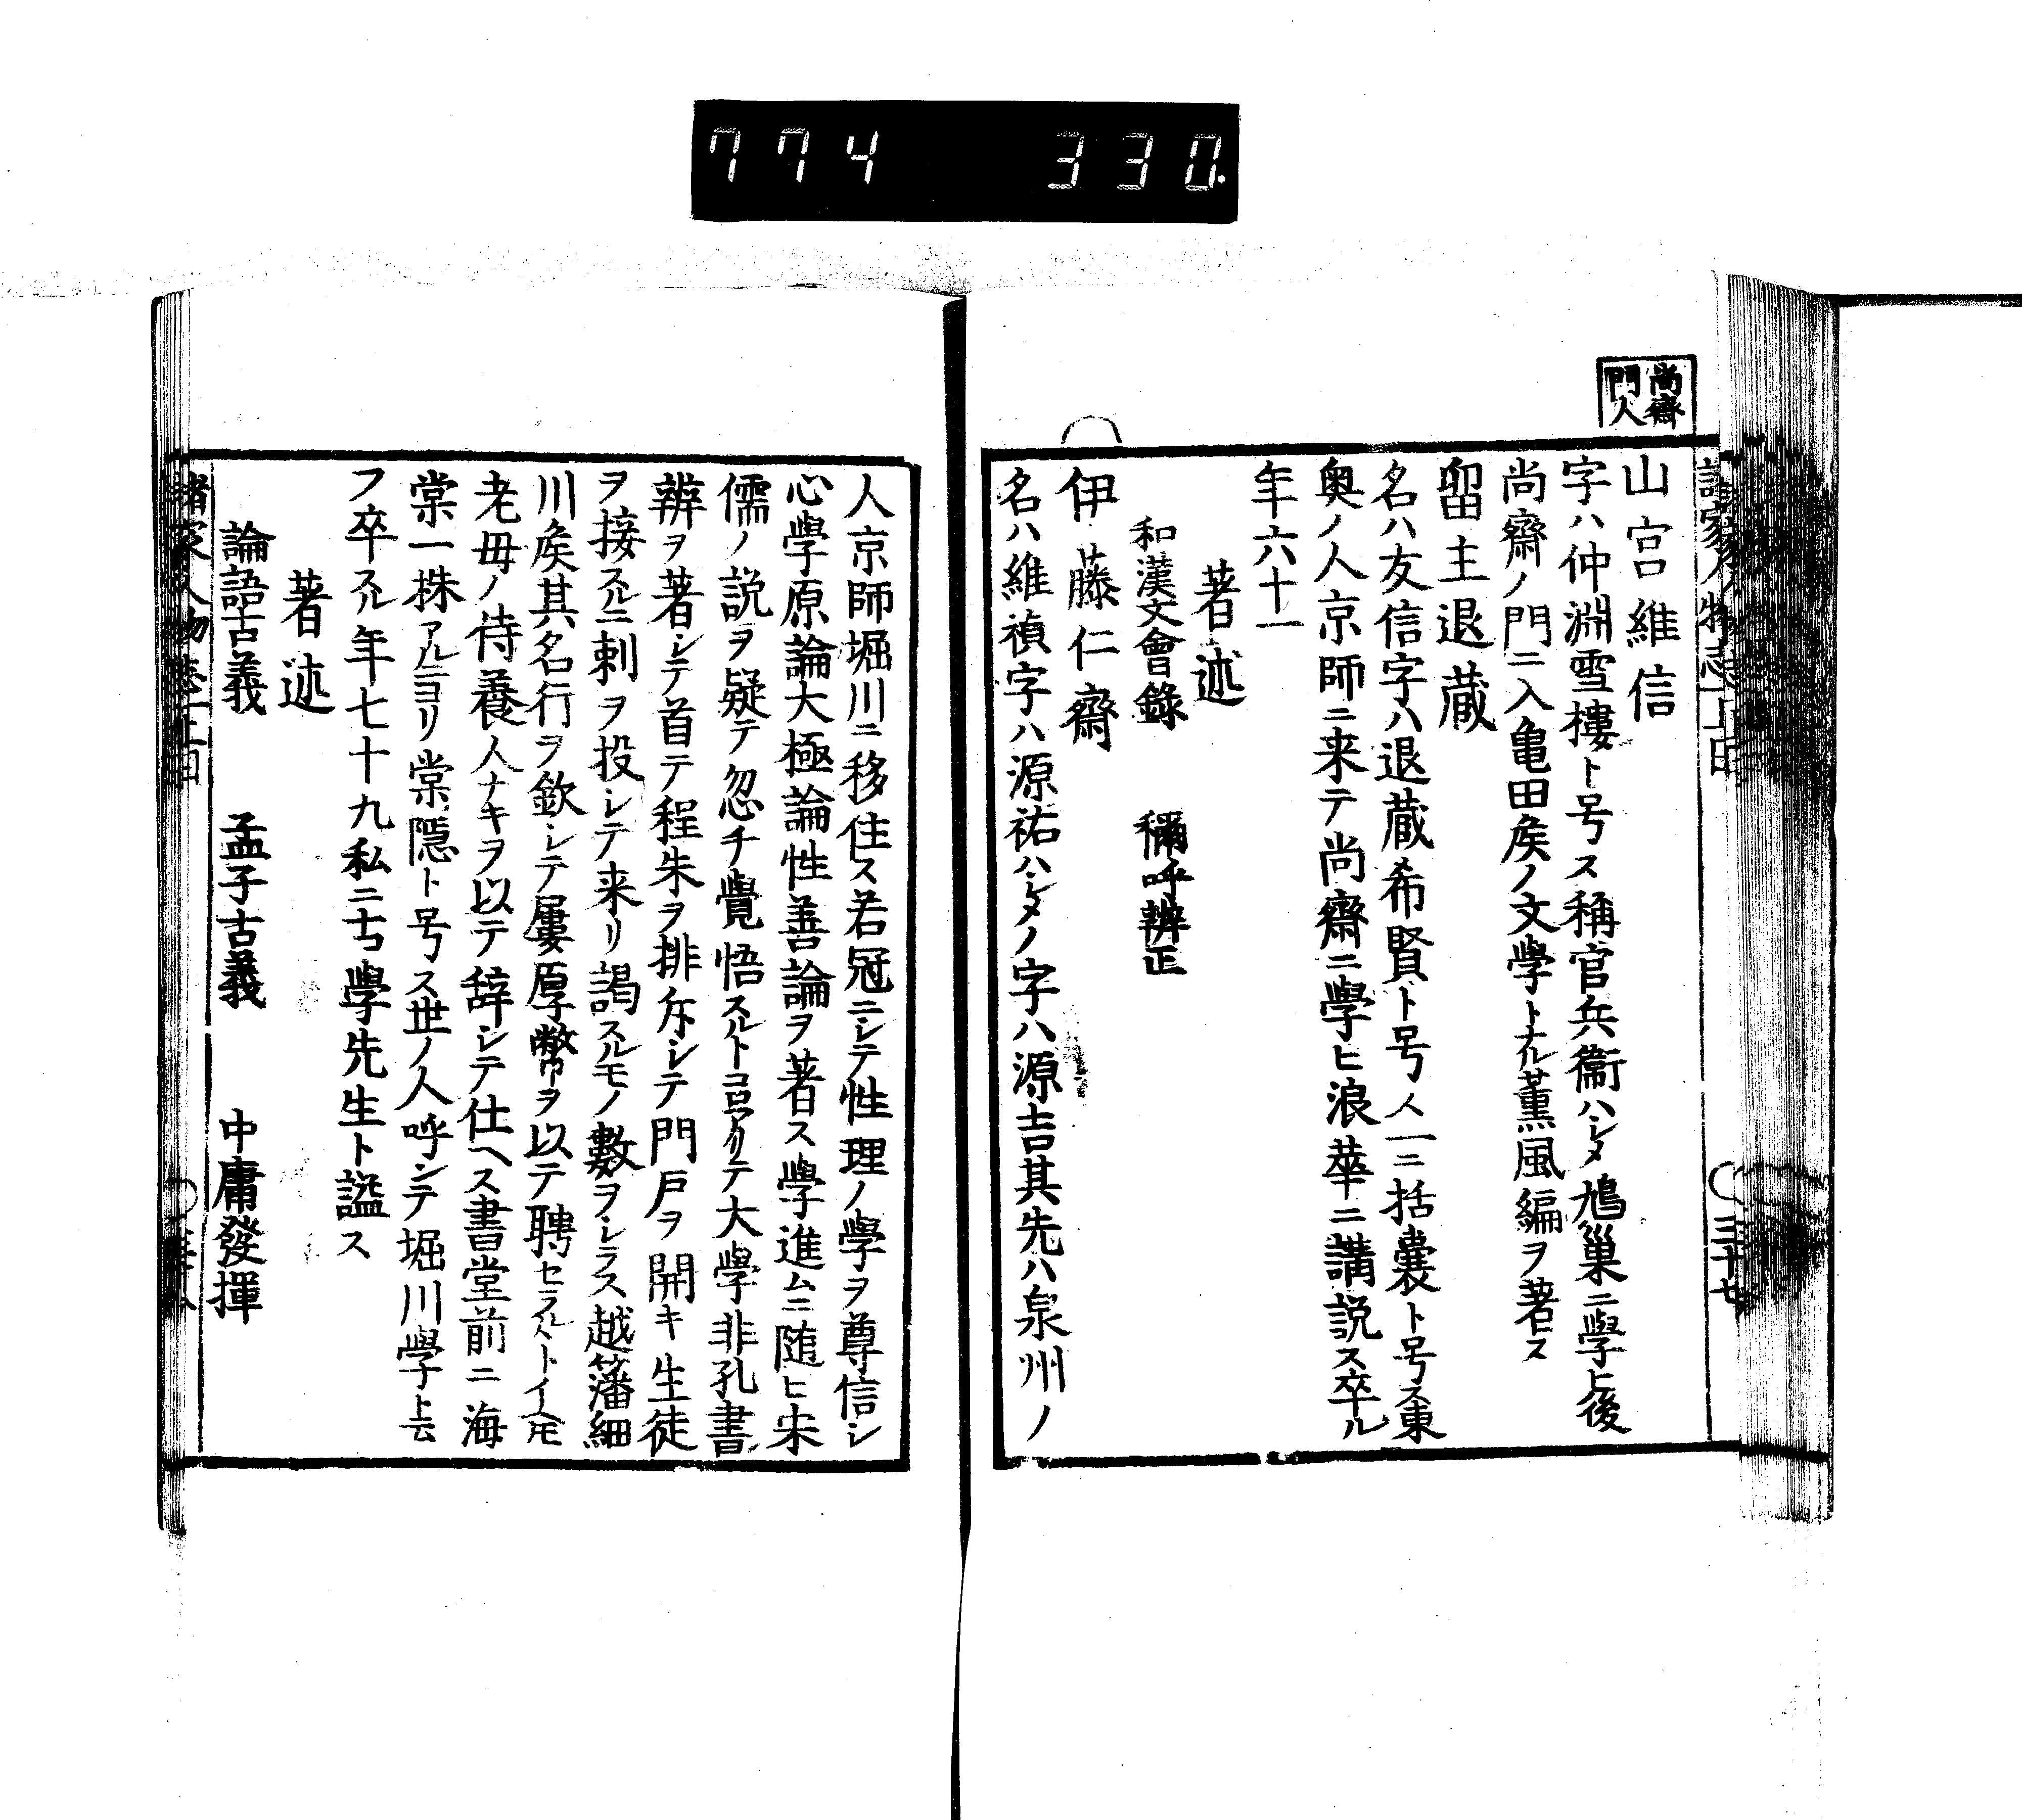 774 330.
尚齋
門人
山宮維信
字ハ仲淵雪樓ト号ス稱官兵衞ハシメ鳩巢ニ學ヒ後
尚齋ノ門ニ入亀田矦ノ文學トナル薫風編ヲ著ス
畄主退蔵
名ハ友信字ハ退蔵希賢ト号人一ニ括囊ト号ス東
奥ノ人京師ニ来テ尚齋ニ學ヒ浪華ニ講説ス卒ル
年六十一
著述
和漢文會錄 稱呼辨正
伊藤仁齋
名ハ維禎字ハ源祐ハシメノ字ハ源吉其先ハ泉州ノ
人京師堀川ニ移住ス若冠ニシテ性理ノ學ヲ尊信シ
心學原論大極論性善論ヲ著ス學進ムニ随ヒ宋
儒ノ説ヲ疑テ忽チ覺悟スルトコロアリテ大學非孔書
辨ヲ著シテ首テ程朱ヲ排斥シテ門戸ヲ開キ生徒
ヲ接スルニ刺ヲ投シテ来リ謁スルモノ數ヲシラス越藩細
川矦其名行ヲ欽シテ屢厚幣ヲ以テ聘セラルヽトイヘ𪜈
老母ノ侍養人ナキヲ以テ辞シテ仕ヘス書堂前ニ海
棠一株アルニヨリ棠隠ト号ス世ノ人呼シテ堀川學ト云
フ卒スル年七十九私ニ古學先生ト謚ス
著述
論語古義 孟子古義 中庸發揮